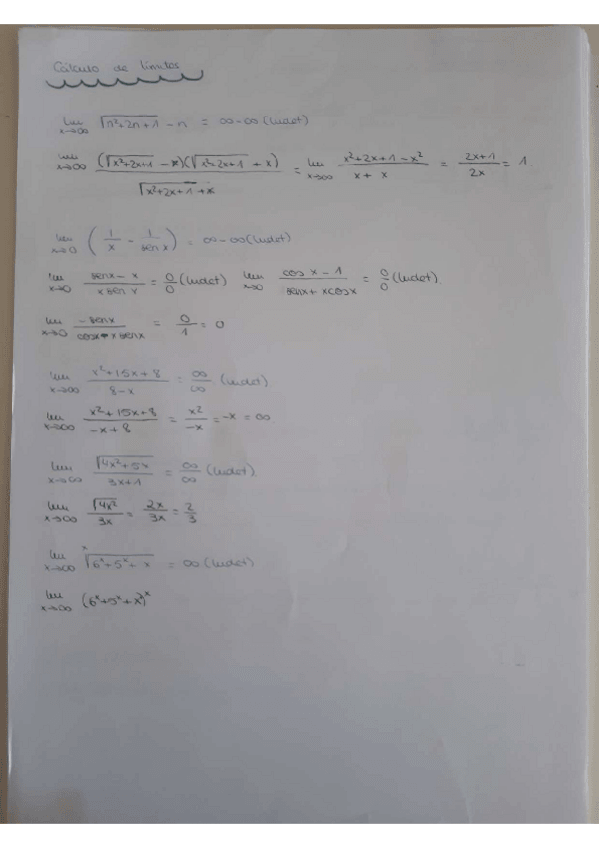 Cálculo de límites
lim x→∞ √(n²+2n+1) - n = ∞-∞ (Indet)
lim x→∞ (√(x²+2x+1) - x)(√(x²+2x+1) + x) / √(x²+2x+1) + x = lim x→∞ x²+2x+1-x² / x+x = 2x+1 / 2x = 1.
lim x→0 (1/x - 1/sen x) = ∞-∞ (Indet)
lim x→0 senx - x / x sen x = 0/0 (Indet) lim x→0 cos x - 1 / senx + xcosx = 0/0 (Indet).
lim x→0 -senx / cosx x senx = 0/1 = 0
lim x→∞ x²+15x+8 / 8-x = ∞/∞ (Indet)
lim x→∞ x²+15x+8 / -x+8 = x²/-x = -x = ∞
lim x→∞ √(4x²+5x) / 3x+1 = ∞/∞ (Indet)
lim x→∞ √(4x²) / 3x = 2x/3x = 2/3
lim x→∞ ˣ√(6ˣ+5ˣ+x) = ∞ (Indet)
lim x→∞ (6ˣ+5ˣ+x)ˣ